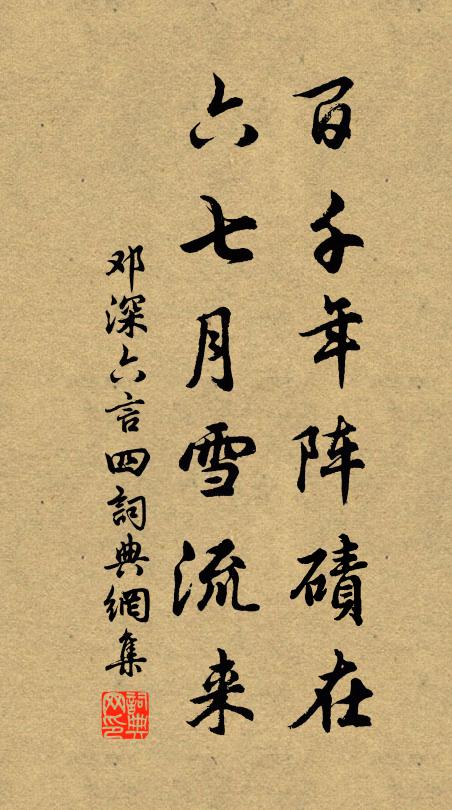 百千年阵磧在
六七月雪流来
邓深六言四詞典網集
詞典
网印